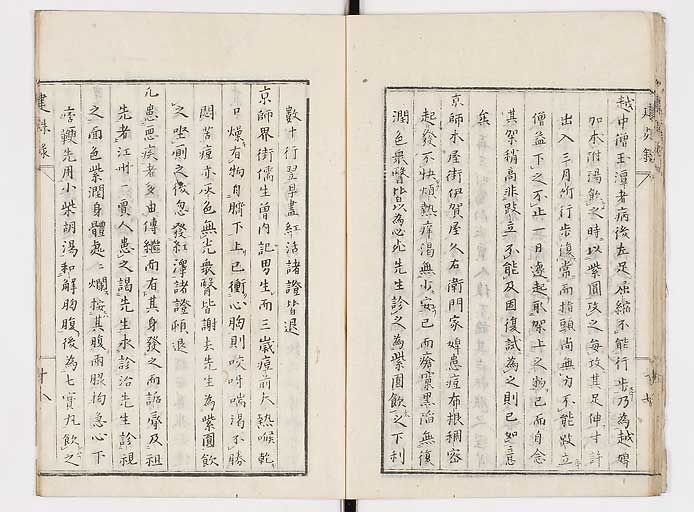 越中僧玉潭者病後左足屈縮不能行步乃為越婢
加朮附湯飲之時以紫圓攻之每攻其足伸寸許
出入三月所行步復常而指頭尚無力不能跂立
僧益下之不止一日遽起取架上之物已而自念
其架稍高非跂立不能及因復試為之則已如意
矣
京師木屋街伊賀屋久右衛門家婢患痘布根稠密
起發不快煩熱痒渴無少安已而瘡窠黑陷無復
潤色眾醫皆以為必死先生診之為紫圓飲之下利
數十行翌早盡紅活諸證皆退
京師界街儒生曾內記男生而三歲痘前大熱喉乾
口燥有物自臍下上已衝心胸則唉呀喘渴不勝
悶苦痘亦灰色無光眾醫皆謝去先生為紫圓飲
之坐廁之後忽發紅澤諸證頓退
凡患惡疾者多由傳繼而有其身發之而詬辱及祖
先者江州一賈人患之謁先生求診治先生診視
之面色紫潤身體處處爛按其腹兩脇拘急心下
痞鞕先用小柴胡湯和解胸腹後為七寶丸飲之
建殊錄
十八